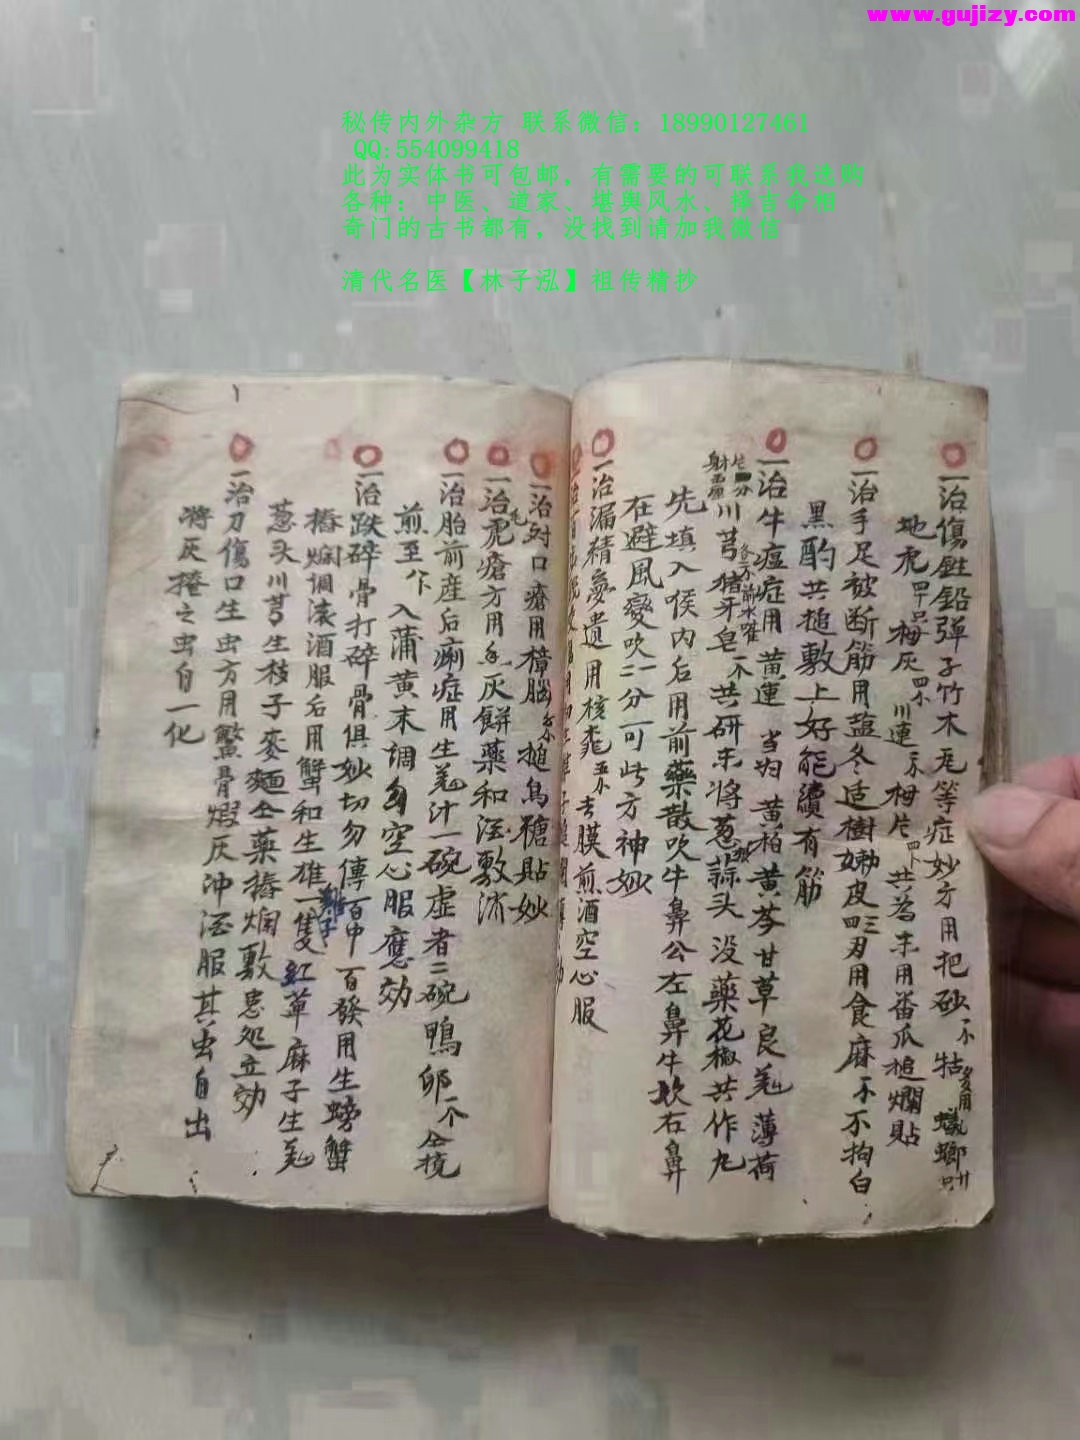 www.gujizy.com
秘传内外杂方 联系微信：18990127461
QQ:554099418
此为实体书可包邮，有需要的可联系我选购
各种：中医、道家、堪舆风水、择吉命相
奇门的古书都有，没找到请加我微信
清代名医【林子泓】祖传精抄
一治傷鉎鉛弹子竹木毛等症妙方用把砂 牯 蟻螂
地虎 梅灰 川連 柑片 共為末用番瓜搥爛貼
一治手足被断筋用盐冬适樹嫰皮四三刃用食麻 不拘白
黑酌共搥敷上好能續有筋
一治牛瘟症用黄連 当归 黄柏黄芩甘草良羗薄荷
川芎猪牙皂 共研末将葱蒜头没藥花椒共作丸
先填入候内后用前藥散吹牛鼻公左鼻牛坎右鼻
在避風処吹二分可此方神妙
一治漏精夢遺用核桃 去膜煎酒空心服
一治对口瘡用樟腦 搥烏糖貼妙
一治虎瘡方用 灰餅藥和酒敷済
一治胎前産后痢症用生羗汁一碗虚者二碗鴨卵一个仝搅
煎至八下入蒲黄末调匀空心服應効
一治跌碎骨打碎骨俱妙切勿傳百中百發用生螃蟹
椿爛调滚酒服后用蟹和生雄雞子一隻紅草麻子生羗
葱头川芎生枝子麥麵仝藥椿爛敷患処立効
一治刀傷口生虫方用鱉骨煆灰沖酒服其虫自出
将灰掩之虫自一化